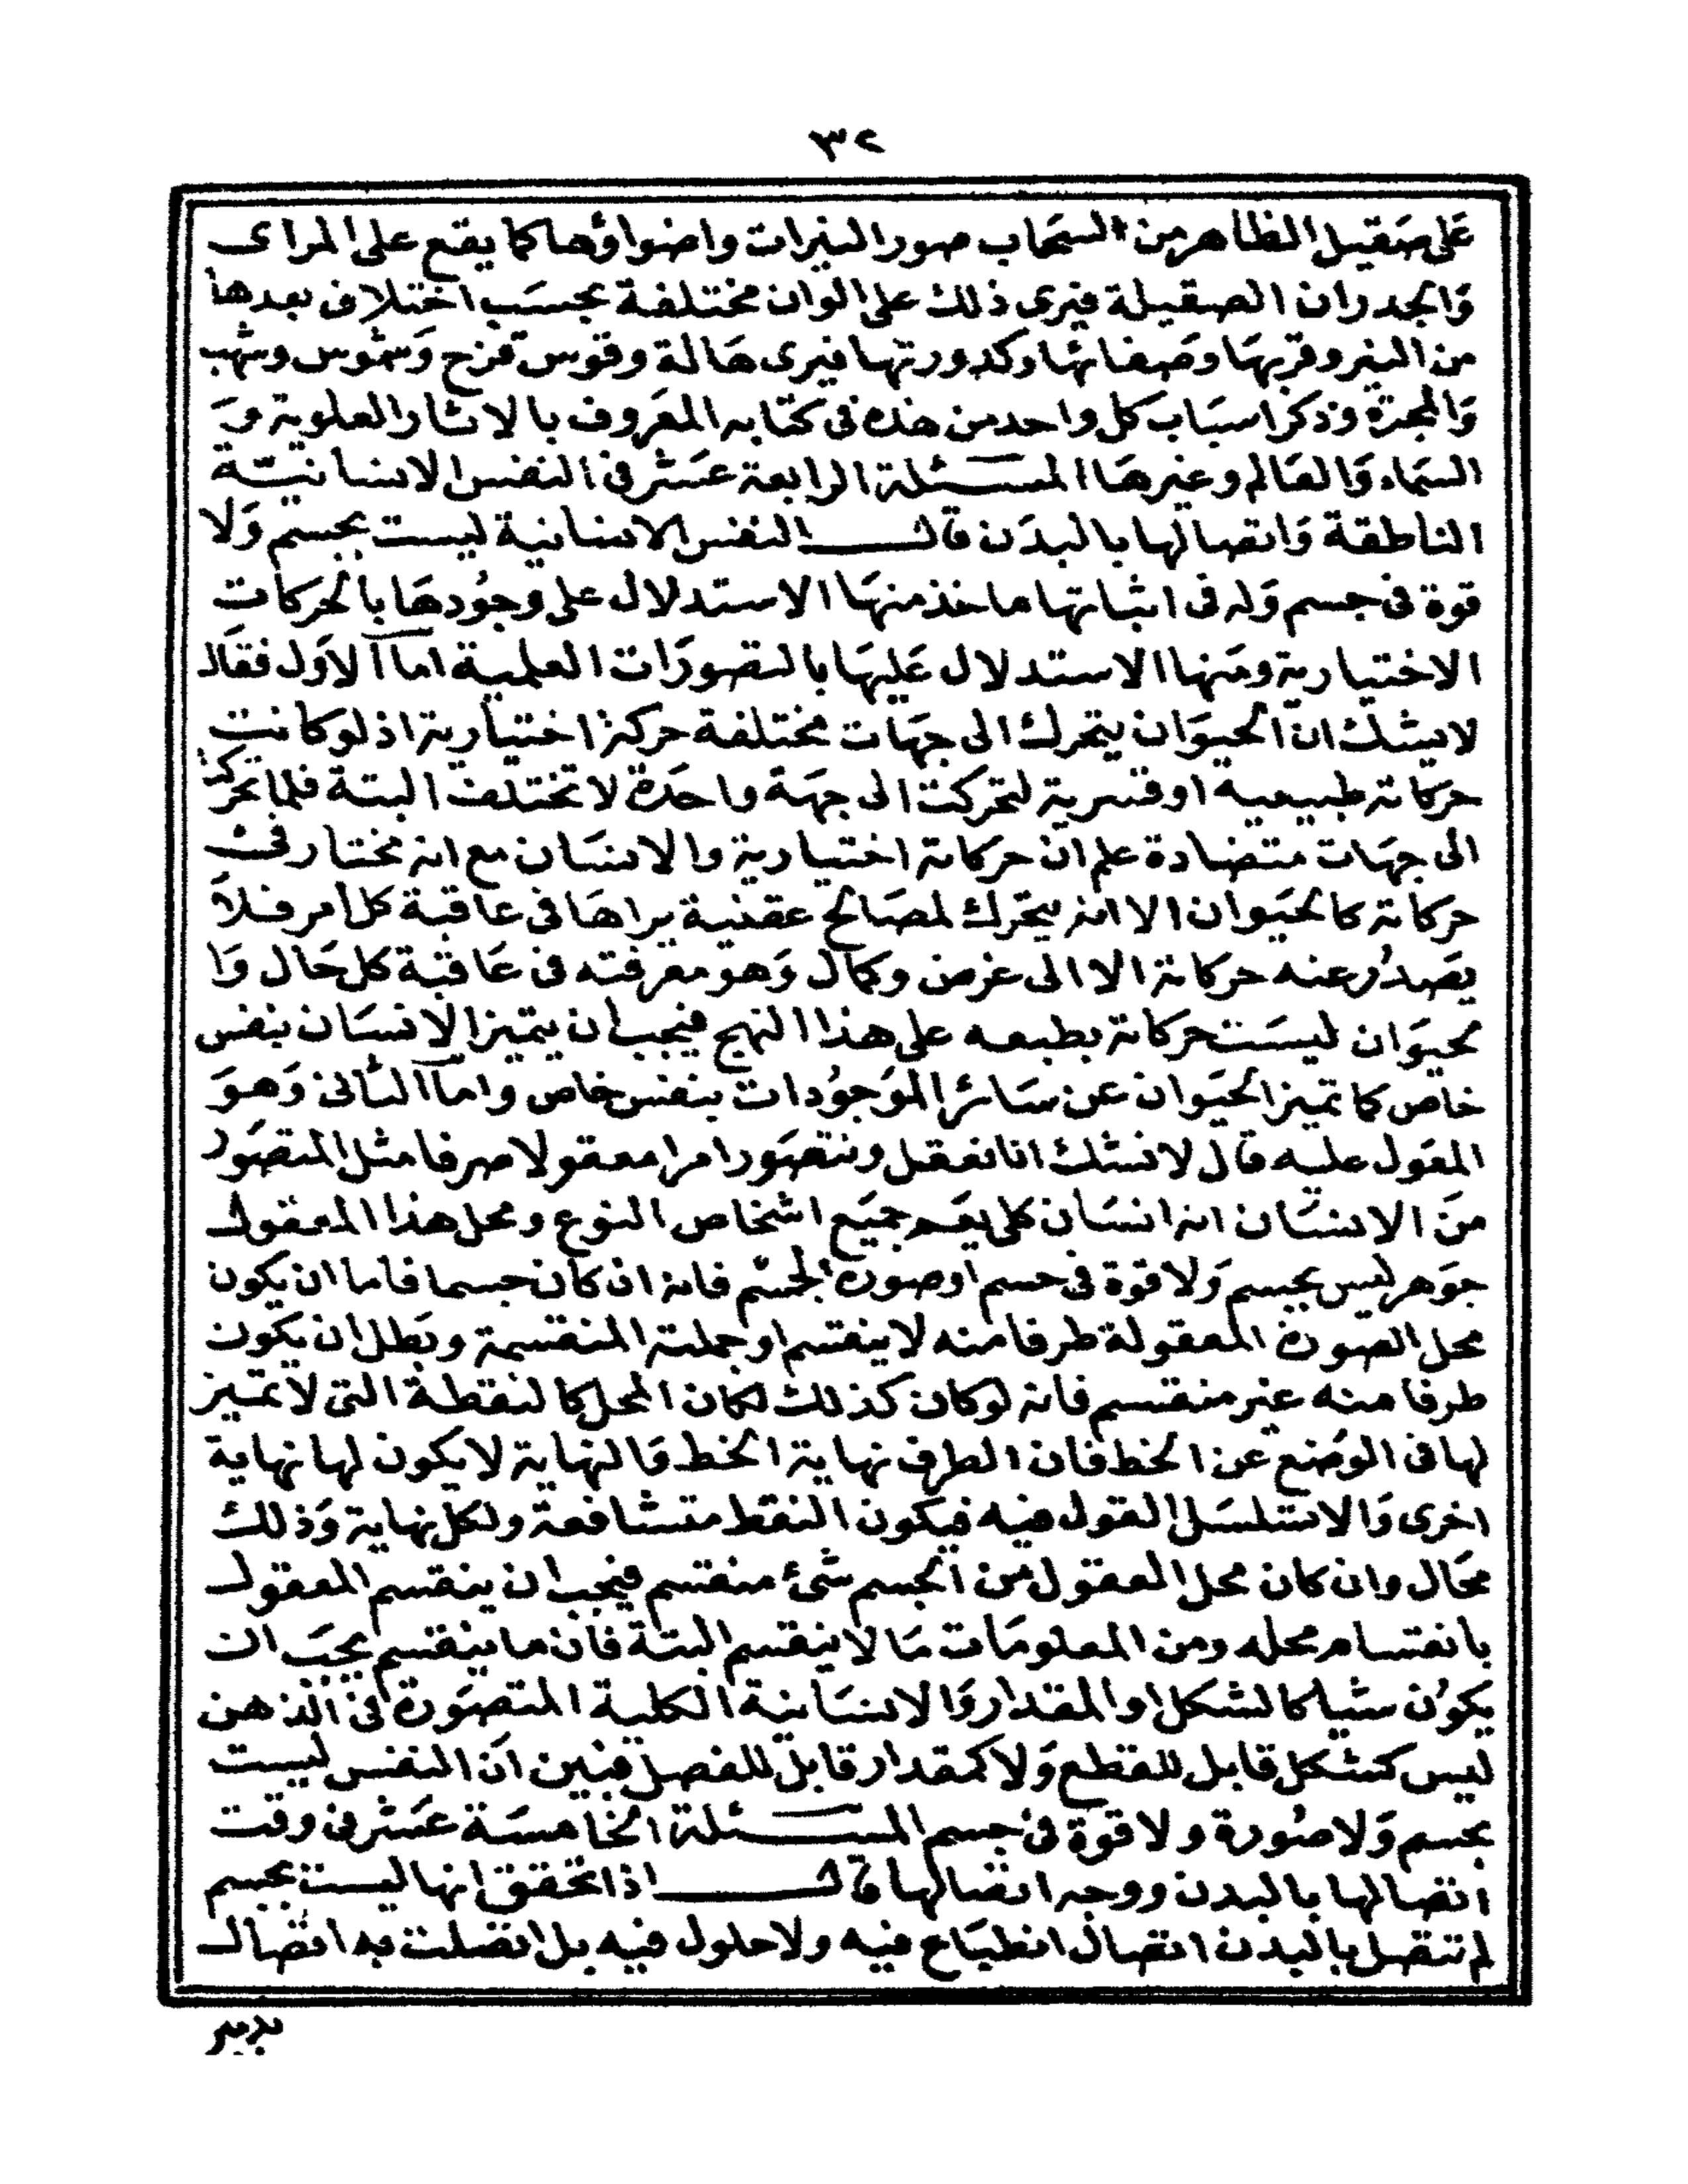 ٣٢
عَلى صَقيل الظاهر من السحَاب صور النيرات واضواؤها كما يقع على المراى
وَالجدران الصقيلة فيرى ذلك على الوان مختلفة بحسَب اختلاف بعدها
من النير وقربهَا وصَفائها وكدورتها فيرى هَالة وقوس قزح وَشموس وشهب
وَالمجرة وذكر اسبَاب كل واحد من هذه فى كتابه المعَروف بالاثار العلوية وَ
السَماء وَالعَالم وغيرهَا المسئلة الرابعة عشر فى النفس الانسانيّة
الناطقة وَاتصالها بالبدَن قال النفس الانسانية ليست بجسم وَلا
قوة فى جسم وَله فى اثباتها ماخذ منهَا الاستدلال على وجوُدهَا بالحركات
الاختيارية ومَنها الاستدلال عَليهَا بالتصورَات العلمية اما الاوَل فقَال
لا يشك ان الحيوَان يتحرك الى جهَات مختلفة حركة اختيارية اذ لو كانت
حركاته طبيعيه او قسرية لتحركت الى جهَة واحدَة لا تختلف البتة فلما تحركت
الى جهَات متضادة علم ان حركاته اختيارية والانسَان مع انه مختار فى
حركاته كالحيَوان الا انه يتحَرك لمصَالح عقنية يراهَا فى عاقبة كل امر فلا
يصَدُر عنه حركاته الا الى غرض وكمال وَهو معرفته فى عَاقبة كل حَال وَا
لحيوَان ليسَت حركاته بطبعه على هذا النهج فيجب ان يتميز الانسَان بنفس
خاص كما تميز الحيَوان عن سَائر الموَجوُدات بنفس خاص واما الثانى وَهوَ
المعَول عليه قال لا نشك انا نعقل ونتصَور امرا معقولا صرفا مثل المتصَور
منَ الانسَان انه انسَان كلى يعَم جميَع اشخاص النوع ومحل هذا المعقول
جوَهر ليس بجسم وَلا قوة فى جسم او صورة لجسم فانه ان كان جسما فاما ان يكون
محل الصورة المعقولة طرفا منه لا ينقسم او جملته المنقسمة وبَطل ان يكون
طرفا منه غير منقسم فانه لو كان كذلك لكان المحل كالنقطة التى لا تميز
لها فى الوضَع عن الخط فان الطرف نهاية الخط وَالنهاية لا يكون لها نهاية
اخرى وَالا تسلسَل القول فيه فيكون النقط متشافعة ولكل نهاية وَذلك
محَال وان كان محل المعقول من الجسم شئ منقسم فيجب ان ينقسم المعقول
بانقسام محله ومن المعلومَات مَا لا ينقسم البتة فان ما ينقسم يجبَ ان
يكوُن شيا كالشكل او المقدار وَالانسَانية الكلية المتصَورة فى الذهن
ليس كشكل قابل للقطع وَلا كمقدار قابل للفصل فبين ان النفس ليست
بجسم وَلا صُورة ولا قوة فى جسم المسئلة الخامسَة عشر فى وقت
اتصالها بالبدن ووجه اتصالها قال اذا تحقق انها ليست بجسم
لم تتصل بالبدن اتصال انطبَاع فيه ولا حلول فيه بل اتصلت به اتصال
تدبير